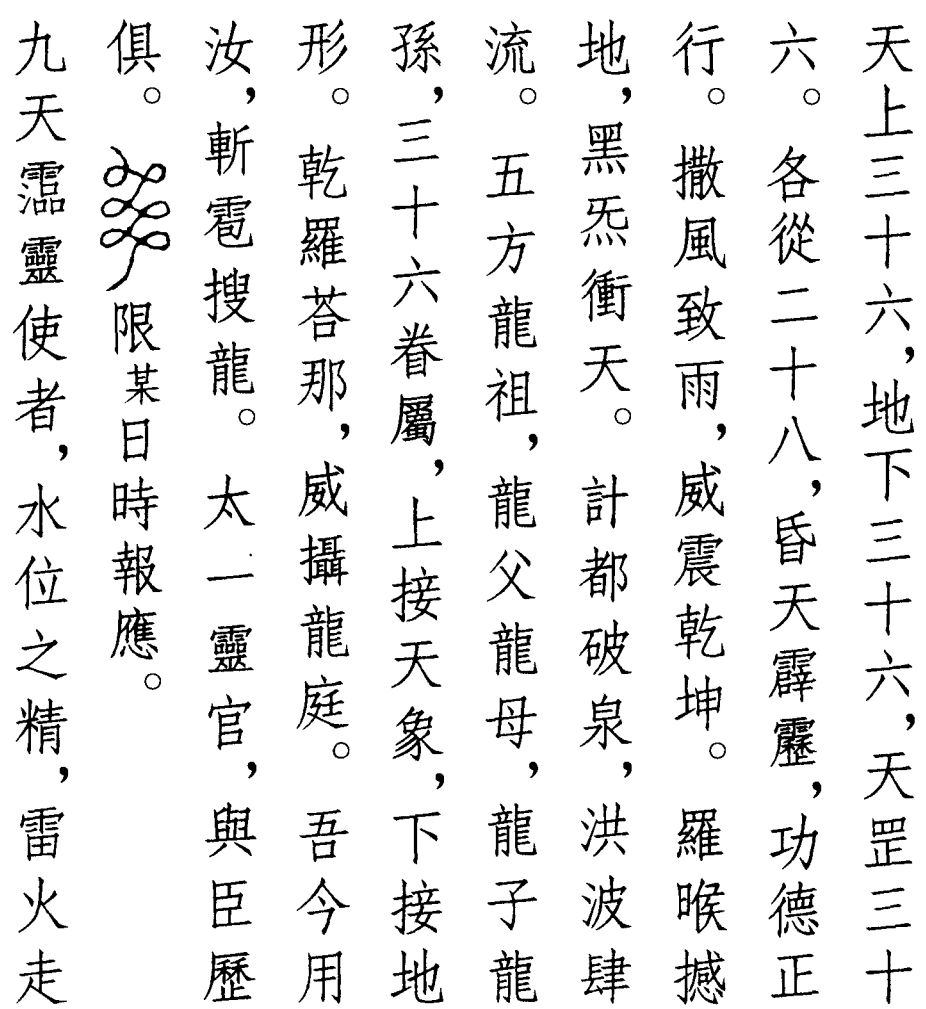 天上三十六，地下三十六，天罡三十
六。各從二十八，昏天霹靂，功德正
行。撒風致雨，威震乾坤。羅睺撼
地，黑炁衝天。計都破泉，洪波肆
流。五方龍祖，龍父龍母，龍子龍
孫，三十六眷屬，上接天象，下接地
形。乾羅荅那，威攝龍庭。吾今用
汝，斬雹搜龍。太一靈官，與臣歷
俱。限某日時報應。
九天靈使者，水位之精，雷火走